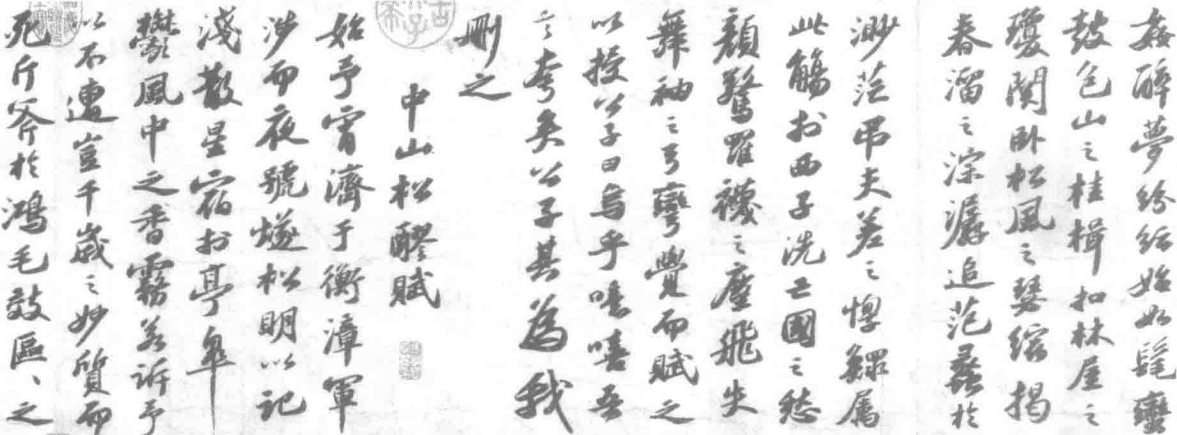 姦醉夢紛紜始如髦蠻
鼓包山之桂楫扣林屋之
瓊關臥松風之瑟縮揭
春溜之淙潺追范蠡於
渺茫弔夫差之惸鰥属
此觴於西子洗亡國之愁
顏驚羅襪之塵飛失
舞袖之弓彎覺而賦之
以授公子曰烏乎噫嘻吾
言夸矣公子其為我
刪之
中山松醪賦
始予宵濟于衡漳軍
涉而夜號燧松明以記
淺散星宿於亭皋
鬱風中之香霧若訴予
以不遭豈千歲之妙質而
死斤斧於鴻毛效區々之